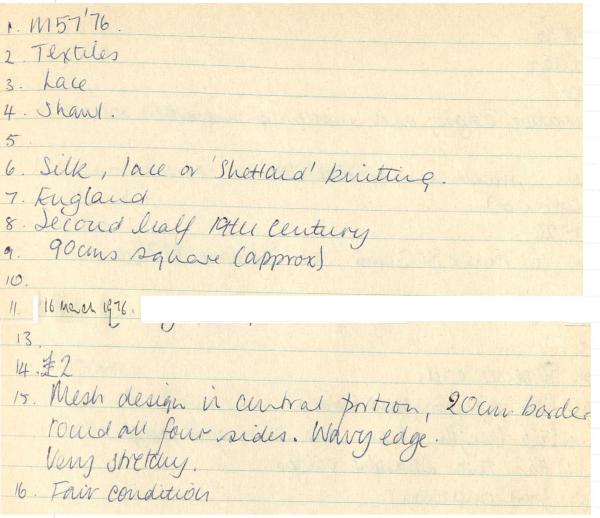 1. M57'76.
2 Textiles
3. Lace
4. Shawl.
5
6. Silk, lace or 'Shetland' knitting.
7. England
8. Second half 19th Century
9. 90cms square (approx)
10.
11. 16 March 1976.
13.
14. £2
15. Mesh design in central portion, 20cm border
round all four sides. Wavy edge.
Very stretchy.
16. Fair condition